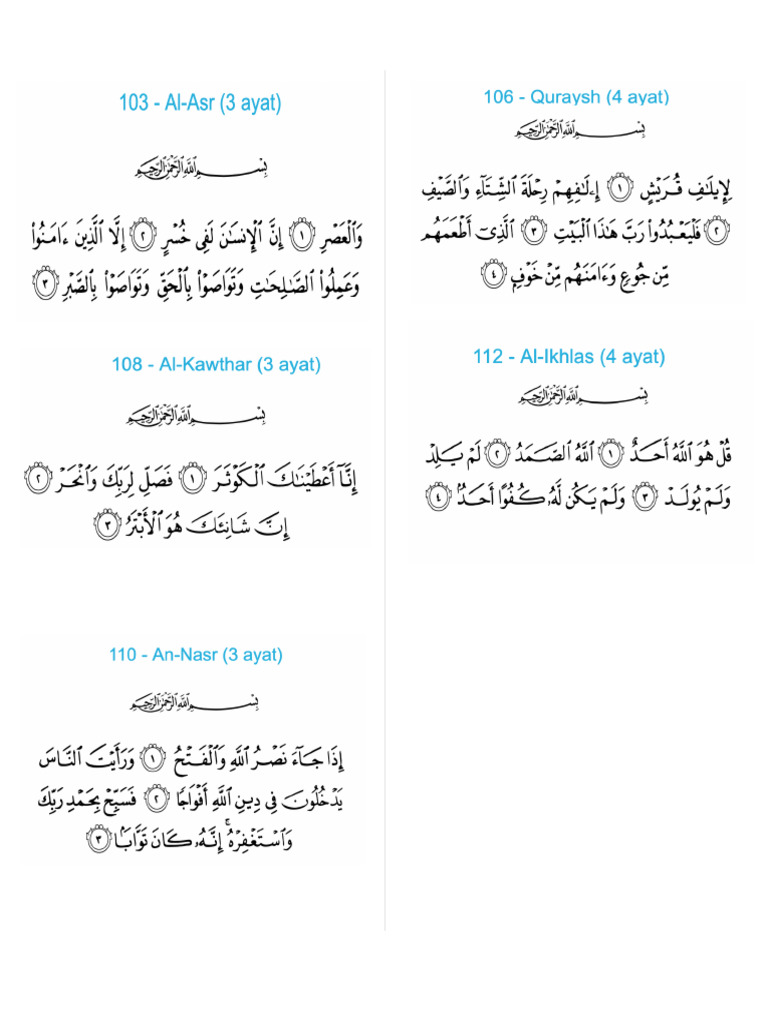 103 - Al-Asr (3 ayat)
بِسْمِ ٱللَّهِ ٱلرَّحْمَٰنِ ٱلرَّحِيمِ
وَٱلْعَصْرِ ١ إِنَّ ٱلْإِنسَٰنَ لَفِى خُسْرٍ ٢ إِلَّا ٱلَّذِينَ ءَامَنُوا۟
وَعَمِلُوا۟ ٱلصَّٰلِحَٰتِ وَتَوَاصَوْا۟ بِٱلْحَقِّ وَتَوَاصَوْا۟ بِٱلصَّبْرِ ٣
108 - Al-Kawthar (3 ayat)
بِسْمِ ٱللَّهِ ٱلرَّحْمَٰنِ ٱلرَّحِيمِ
إِنَّآ أَعْطَيْنَٰكَ ٱلْكَوْثَرَ ١ فَصَلِّ لِرَبِّكَ وَٱنْحَرْ ٢
إِنَّ شَانِئَكَ هُوَ ٱلْأَبْتَرُ ٣
110 - An-Nasr (3 ayat)
بِسْمِ ٱللَّهِ ٱلرَّحْمَٰنِ ٱلرَّحِيمِ
إِذَا جَآءَ نَصْرُ ٱللَّهِ وَٱلْفَتْحُ ١ وَرَأَيْتَ ٱلنَّاسَ
يَدْخُلُونَ فِى دِينِ ٱللَّهِ أَفْوَاجًا ٢ فَسَبِّحْ بِحَمْدِ رَبِّكَ
وَٱسْتَغْفِرْهُ ۚ إِنَّهُۥ كَانَ تَوَّابًۢا ٣
106 - Quraysh (4 ayat)
بِسْمِ ٱللَّهِ ٱلرَّحْمَٰنِ ٱلرَّحِيمِ
لِإِيلَٰفِ قُرَيْشٍ ١ إِۦلَٰفِهِمْ رِحْلَةَ ٱلشِّتَآءِ وَٱلصَّيْفِ
٢ فَلْيَعْبُدُوا۟ رَبَّ هَٰذَا ٱلْبَيْتِ ٣ ٱلَّذِىٓ أَطْعَمَهُم
مِّن جُوعٍ وَءَامَنَهُم مِّنْ خَوْفٍۭ ٤
112 - Al-Ikhlas (4 ayat)
بِسْمِ ٱللَّهِ ٱلرَّحْمَٰنِ ٱلرَّحِيمِ
قُلْ هُوَ ٱللَّهُ أَحَدٌ ١ ٱللَّهُ ٱلصَّمَدُ ٢ لَمْ يَلِدْ
وَلَمْ يُولَدْ ٣ وَلَمْ يَكُن لَّهُۥ كُفُوًا أَحَدٌۢ ٤